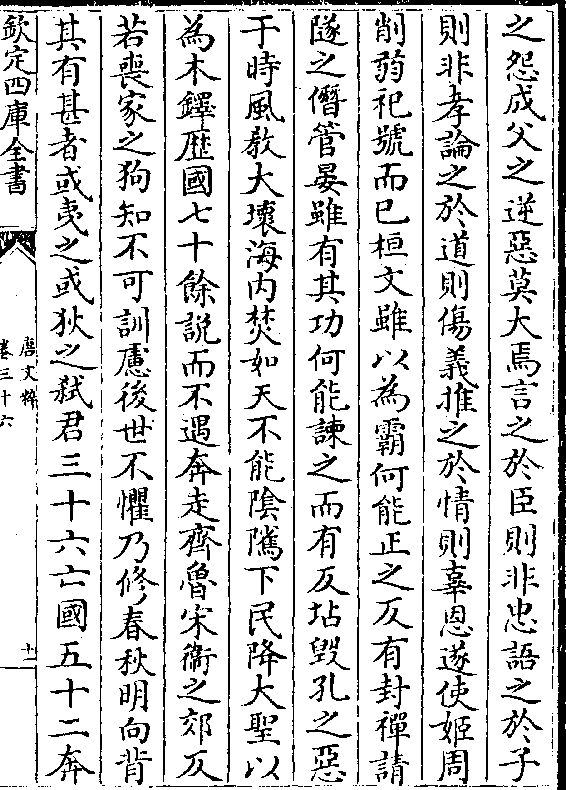 之怨成父之逆惡莫大焉言之於臣則非忠語之於子
則非孝論之於道則傷義推之於情則辜恩遂使姬周
削弱祀號而已桓文雖以為霸何能正之仄有封禪請
隧之僭管晏雖有其功何能諫之而有仄坫毁孔之惡
于時風教大壞海内焚如天不能隂隲下民降大聖以
為木鐸歴國七十餘説而不遇奔走齊魯宋衞之郊仄
若喪家之狗知不可訓慮後世不懼乃修春秋明向背
其有甚者或夷之或狄之弑君三十六亡國五十二奔
欽定四庫全書
唐文粹
卷三十六
十一